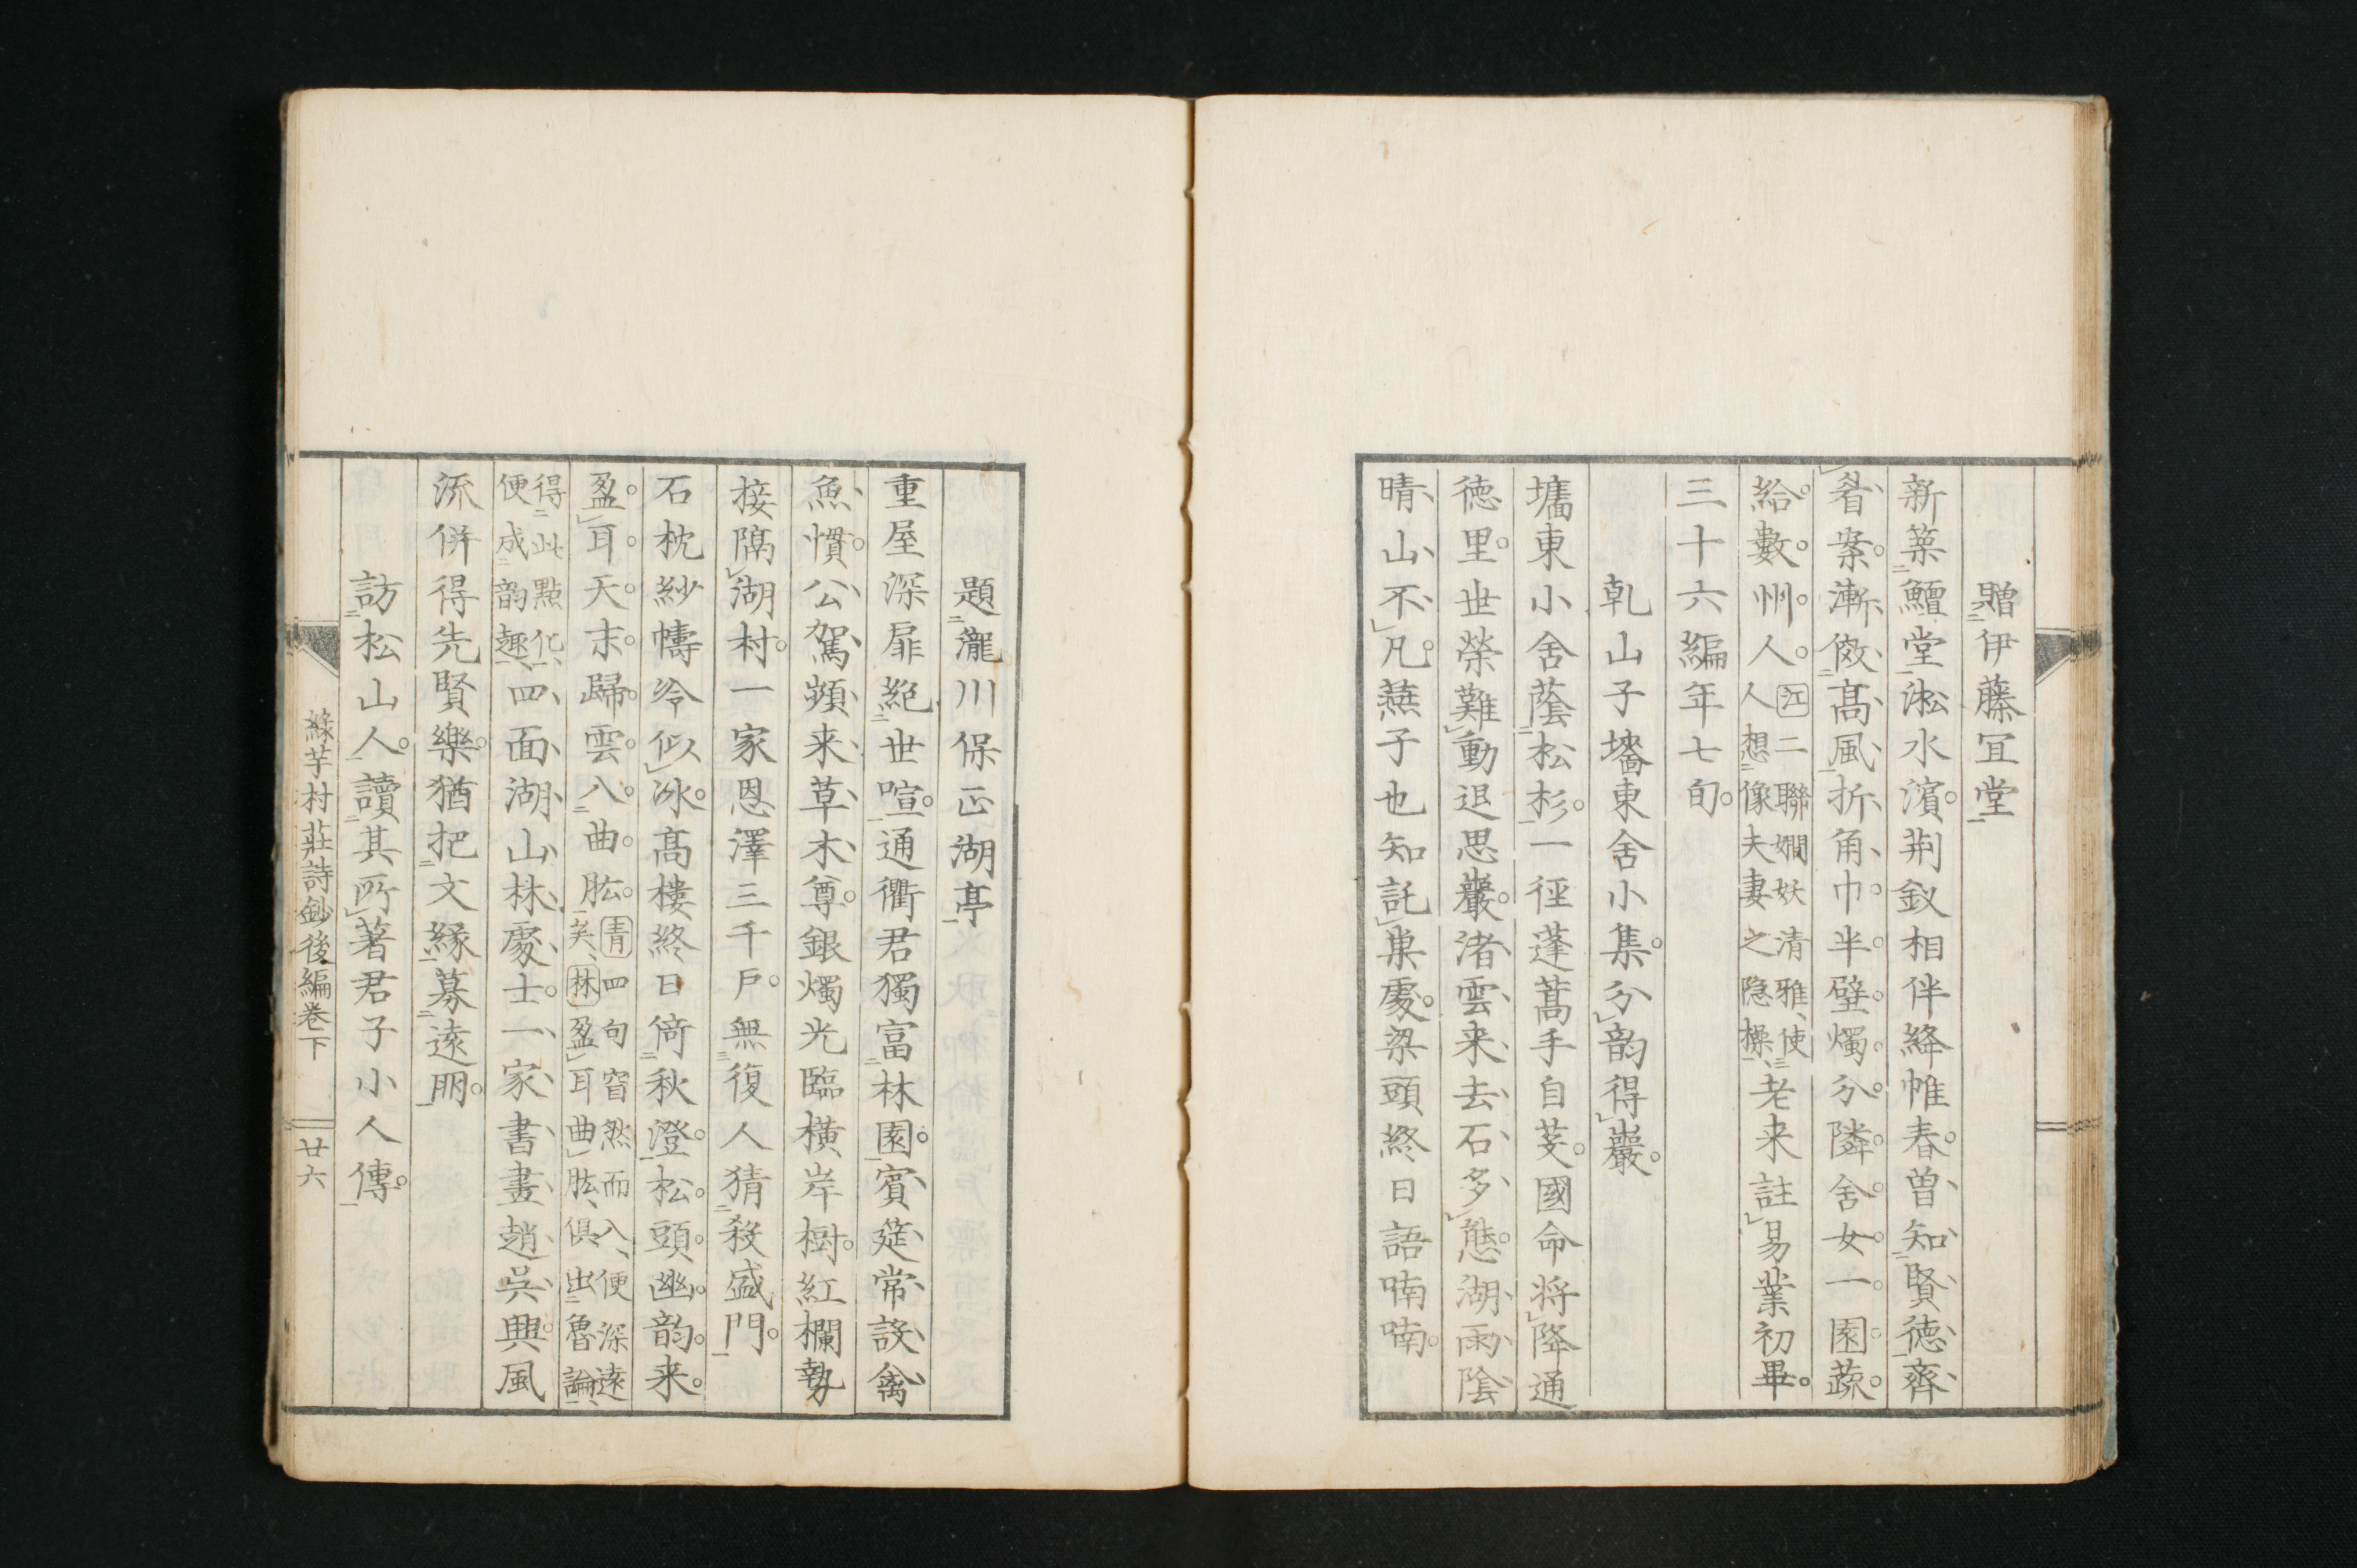 贈伊藤冝堂
新築鱣堂淞水濱荆釵相伴絳帷春曽知賢徳齊
眉案漸傚髙風折角巾半壁燭分隣舍女一園蔬
給數州人江二聯嫺妖清雅使人想像夫妻之隐操老来註易業初畢
三十六編年七旬
乹山子墻東舍小集分韵得巖
墻東小舍蔭松杉一徑蓬蒿手自芟國命将降通
徳里世榮難動退思巖渚雲来去石多態湖雨陰
晴山不凡蕪子也知託巣處梁頭終日語喃喃
題瀧川保正湖亭
重屋深扉絶世喧通衢君獨富林園賓莚常設禽
魚慣公駕頻来草木尊銀燭光臨橫岸樹紅欄勢
接隔湖村一家恩澤三千戶無復人猜殺盛門
石枕紗幬冷似冰髙樓終日倚秋澄松頭幽韵来
盈耳天末歸雲入曲肱青四句窅然而入便深遠矣林盈耳曲肱俱出魯論
得此點化便成韵趣四面湖山林處士一家書畫趙吳興風
流併得先賢樂猶把文緣募遠朋
訪松山人讀其所著君子小人傳
綠芋村莊詩鈔後編卷下
廿六